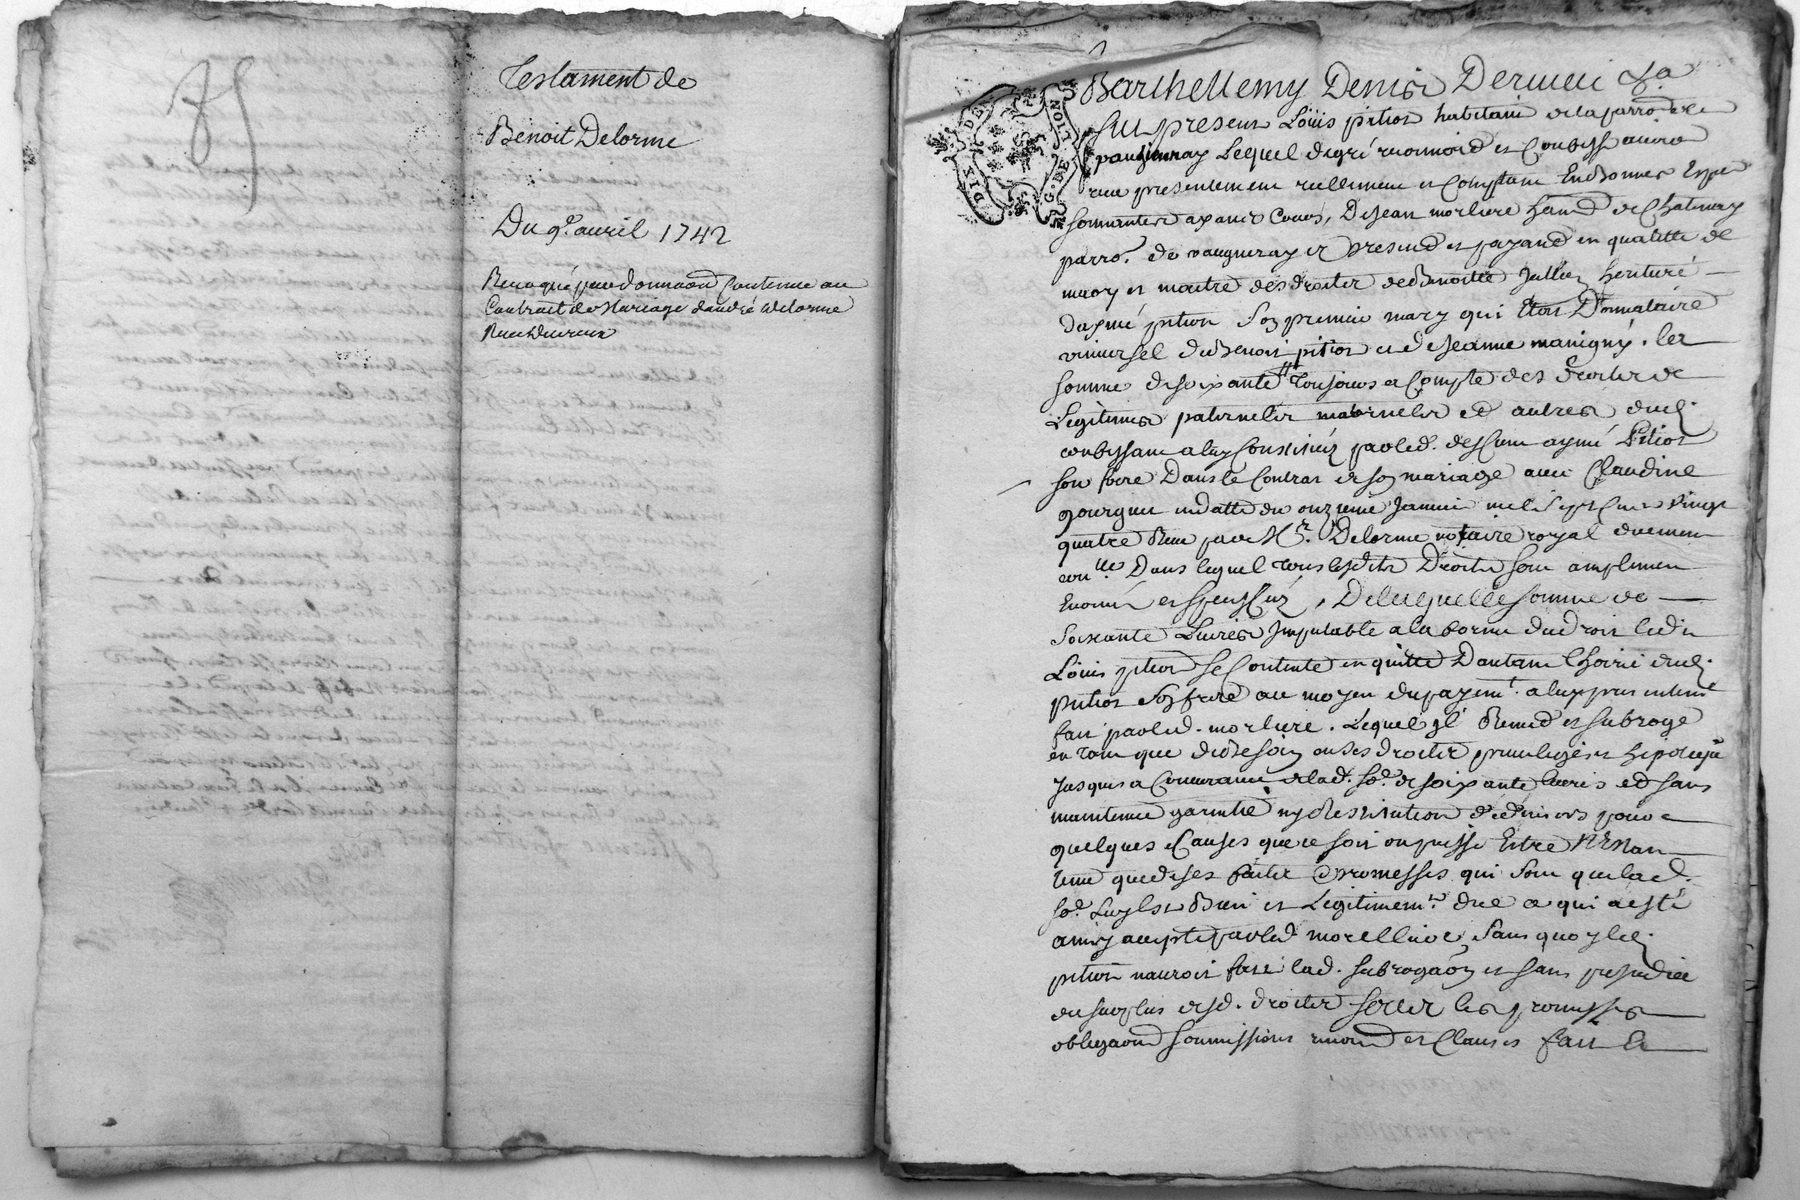 Testament de
Benoit Delorme
Du 9e. auril 1742
Reuoqué par donnaon contenue au
Contrait de Mariage d'andré delorme
Barthellemy Denis
Fut present Loüis pition habitant de la parroisse
de vaugneray Lequel de gré reconnoit et Confesse auoir
receu presentement reellement et Comptant En bonnes Espe
sonnantes ayant Cours, De Jean morliere hant de Chatenay
parro.e de vaugneray et present et payant en qualitté de
mary et maitre des droits de Benoitte Jullien heritiere
daymé pition son premier mary qui Etoit Donnataire
vniuersel de Benoit pition et de Jeanne manigny. la
somme de soixante tt tousjours a Compte des droits de
Legitimes paternels maternels et autres dud.
confessant a luy Constitués par led. deffunt aymé Pition
son frere Dans le Contrat de son mariage auec Claudine
en datte du onzieme Januier mil sept Cent vingt
quatre Receu par Me. Delorme nottaire royal duement
con.lé Dans lequel tous lesdits Droits sont amplement
Enoncés et speciffiez, De laquelle somme de
Soixante Liures Imputable a la forme du droit ledit
Loüis pition se Contente en quitte Dautant l'hoirie dud.
pition son frere au moyen du payem.t a luy presentem.t
fait par led. morliere. Lequel il Remet et subroge
en tant que de besoin en ses droits priuilegés et hipoteque
Jusques a Concurrance de lad. so.e de soixante liures et sans
maintenue garantie ny restitution de deniers pour
quelques Causes que ce soit ou puisse Estre N'Estant
tenu que de ses faits et promesses qui sont que lad.
so.e Luy Est Bien et Legitimem.t due ce qui a esté
ainsy accepté par led. morelliere, Sans quoy led.
pition n'auroit fait lad. subrogaon et sans prejudice
du surplus desd. droits
obligaons soumissions renon et Clauses fait a